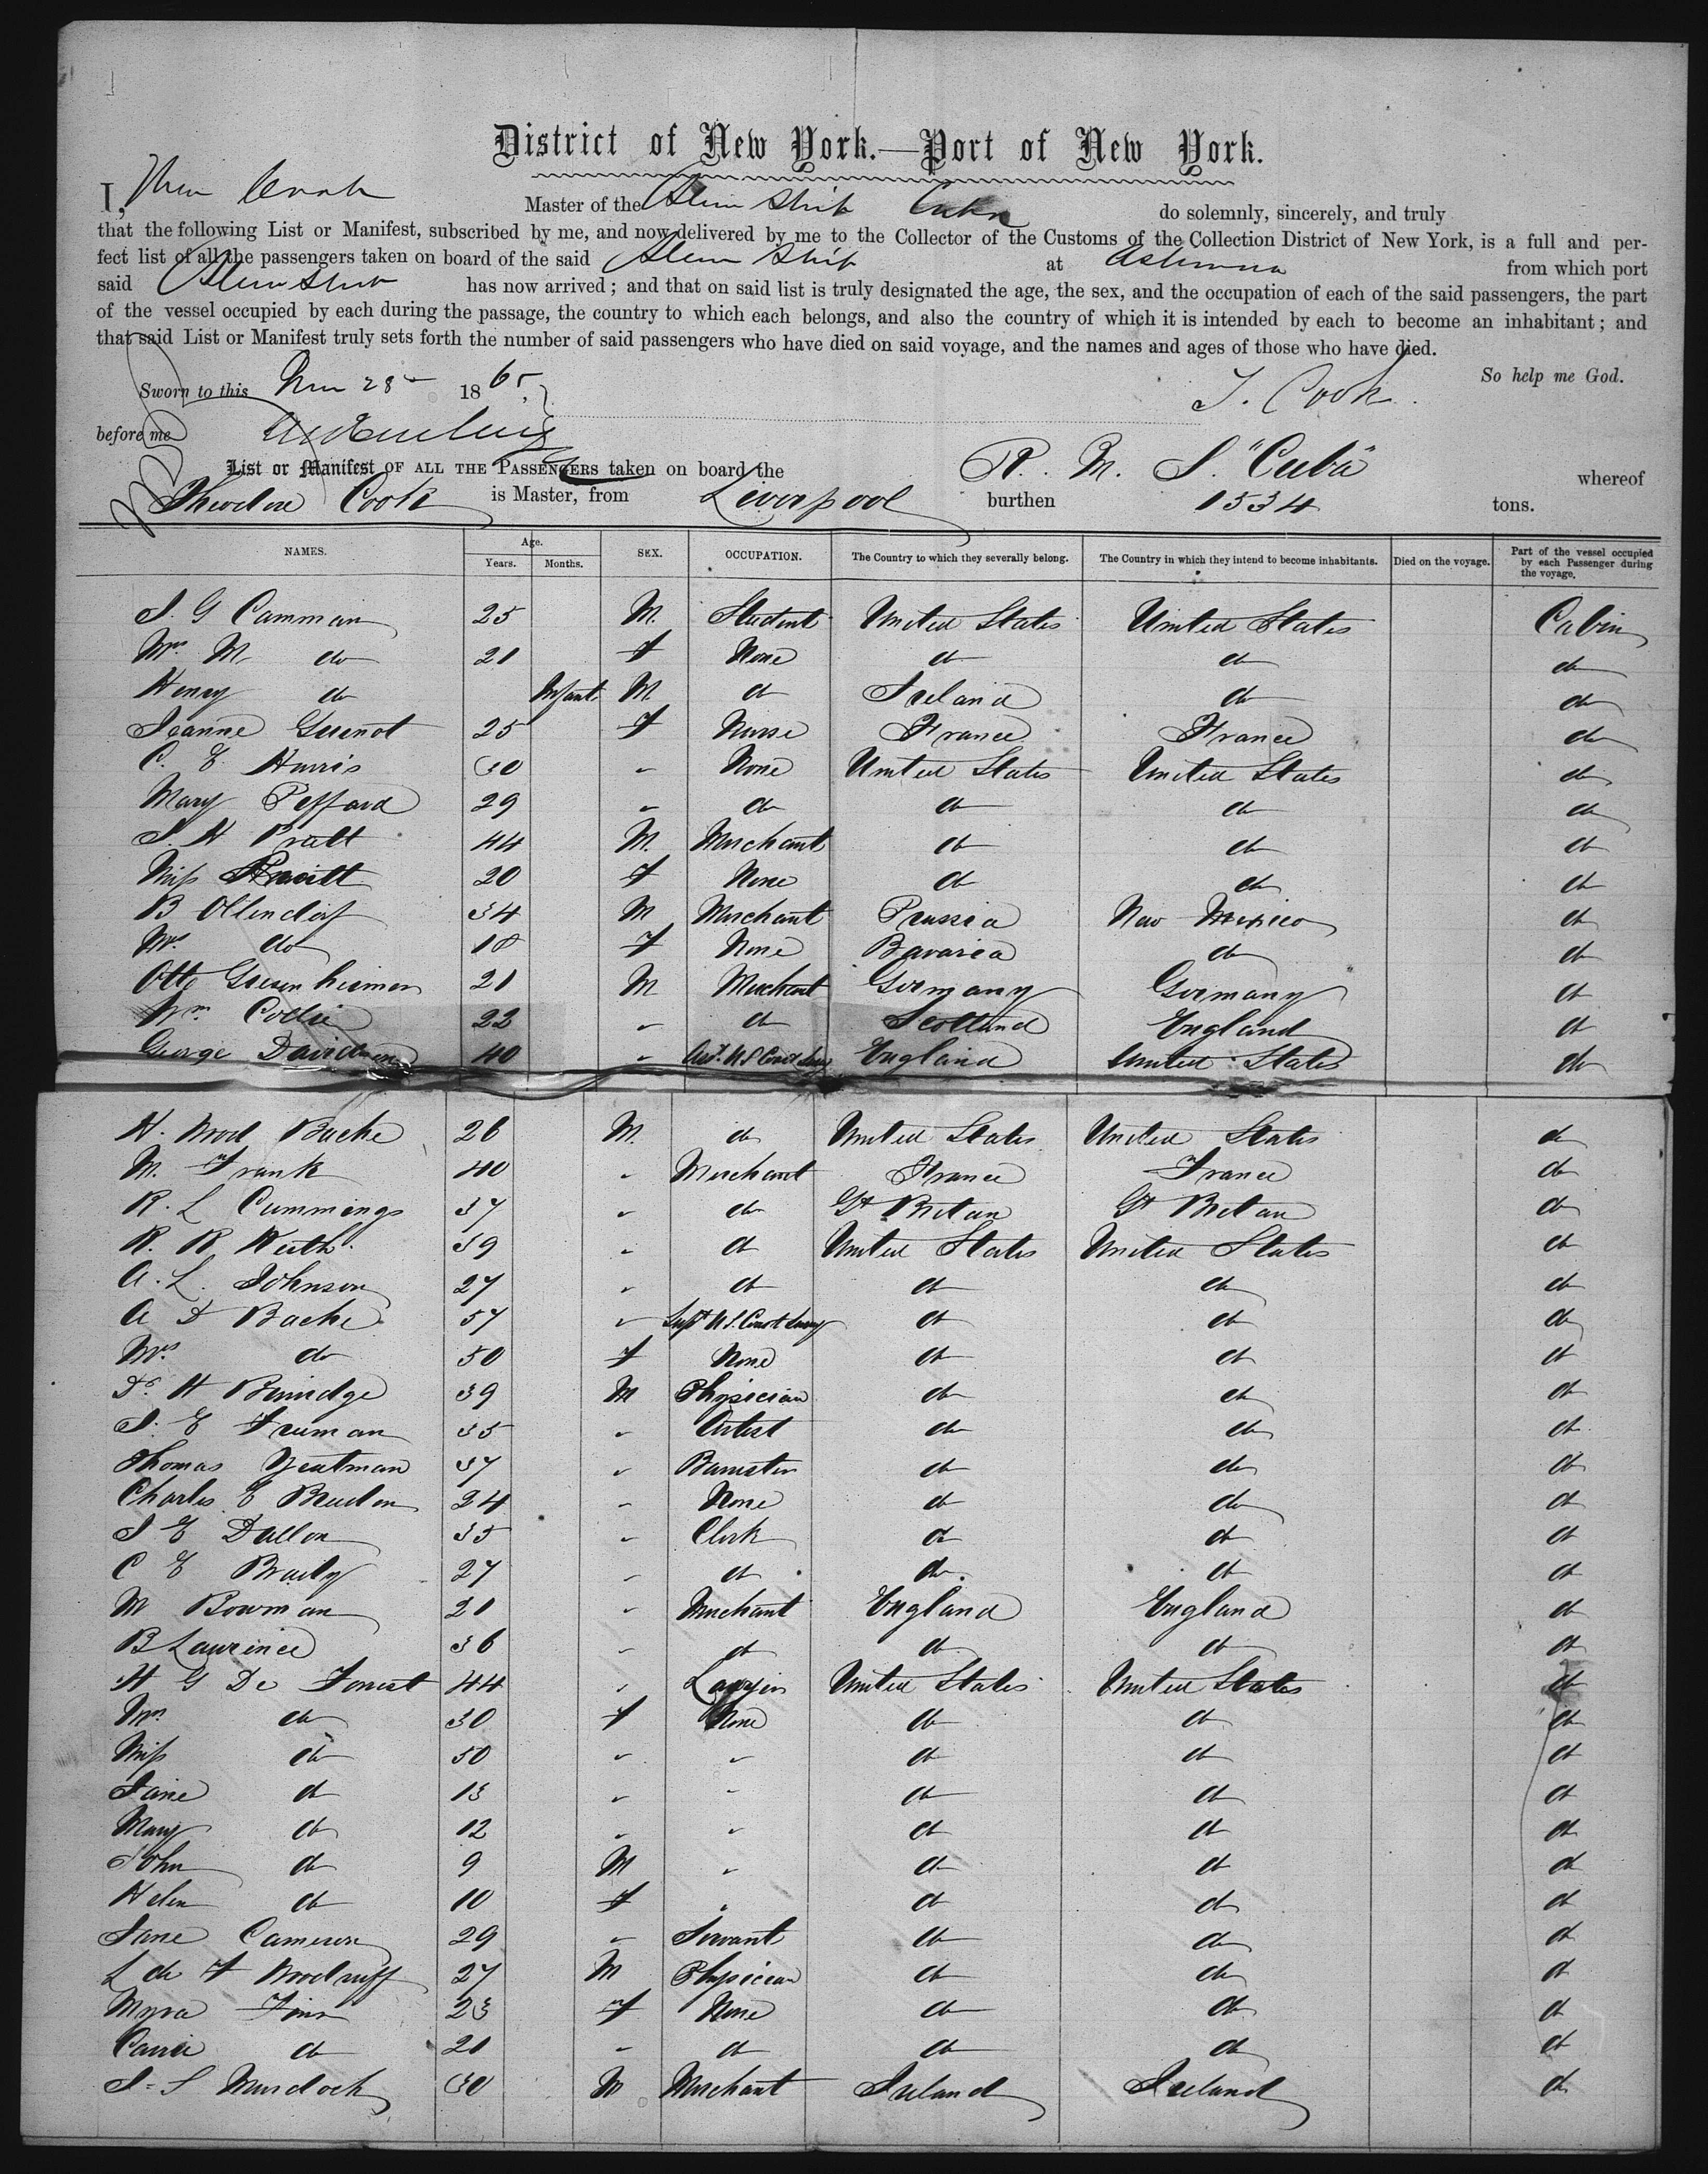 District of New York.—Port of New York.
I, Theo Cook Master of the Steam Ship Cuba do solemnly, sincerely, and truly
that the following List or Manifest, subscribed by me, and now delivered by me to the Collector of the Customs of the Collection District of New York, is a full and per-
fect list of all the passengers taken on board of the said Steam Ship at from which port
said Steam Ship has now arrived; and that on said list is truly designated the age, the sex, and the occupation of each of the said passengers, the part
of the vessel occupied by each during the passage, the country to which each belongs, and also the country of which it is intended by each to become an inhabitant; and
that said List or Manifest truly sets forth the number of said passengers who have died on said voyage, and the names and ages of those who have died.
So help me God.
Sworn to this 28 1865, T. Cook.
before me
List or Manifest OF ALL THE PASSENGERS taken on board the R. M. S. "Cuba" whereof
Theodore Cook is Master, from Liverpool burthen 1534 tons.
NAMES. Age. Years. Months. SEX. OCCUPATION. The Country to which they severally belong. The Country in which they intend to become inhabitants. Died on the voyage. Part of the vessel occupied by each Passenger during the voyage.
J. G Camman 25 M. Student United States United States Cabin
Mrs M do 21 F None do do do
Henry do Infant M do Ireland do do
Jeanne Guenot 25 F Nurse France France do
C. E Harris 30 " None United States United States do
Mary Peffard 29 " do do do do
J. H Pratt 44 M. Merchant do do do
Miss 20 F None do do do
B Ollendorf 34 M Merchant Prussia New Mexico do
Mrs do 18 F None Bavaria do do
Otto 21 M Merchant Germany Germany do
Wm Collie 22 " do Scotland England do
George Davidson 40 " Asst. U S Coast Survey England United States do
H. Wood Bache 26 M. do United States United States do
M. Frank 40 " Merchant France France do
R. L Cummings 37 " do Gt Britan Gt Britan do
R. R Keith 39 " do United States United States do
A. L. Johnson 27 " do do do do
A D Bache 57 " Supt U S. Coast Survey do do do
Mrs do 50 F None do do do
Dr H Bainidge 39 M Physician do do do
J. E Freeman 35 " Artist do do do
Thomas Yeatman 37 " Barrister do do do
Charles E 24 " None do do do
J E Dallon 35 " Clerk do do do
C E Braily 27 " do do. do do
M Bowman 21 " Merchant England England do
B Lawrence 36 " do do do do
H G De Forrest 44 " Lawyer United States United States do
Mrs do 30 F None do do do
Miss do 50 " " do do do
Jane do 13 " " do do do
Mary do 12 " " do do do
John do 9 M " do do do
Helen do 10 F " do do do
Jane Cameron 29 " Servant do do do
L de F Woodruff 27 M Physician do do do
Myra Finn 23 F None do do do
Carrie do 21 " do do do do
J. S Murdoch 30 M Merchant Ireland Ireland do